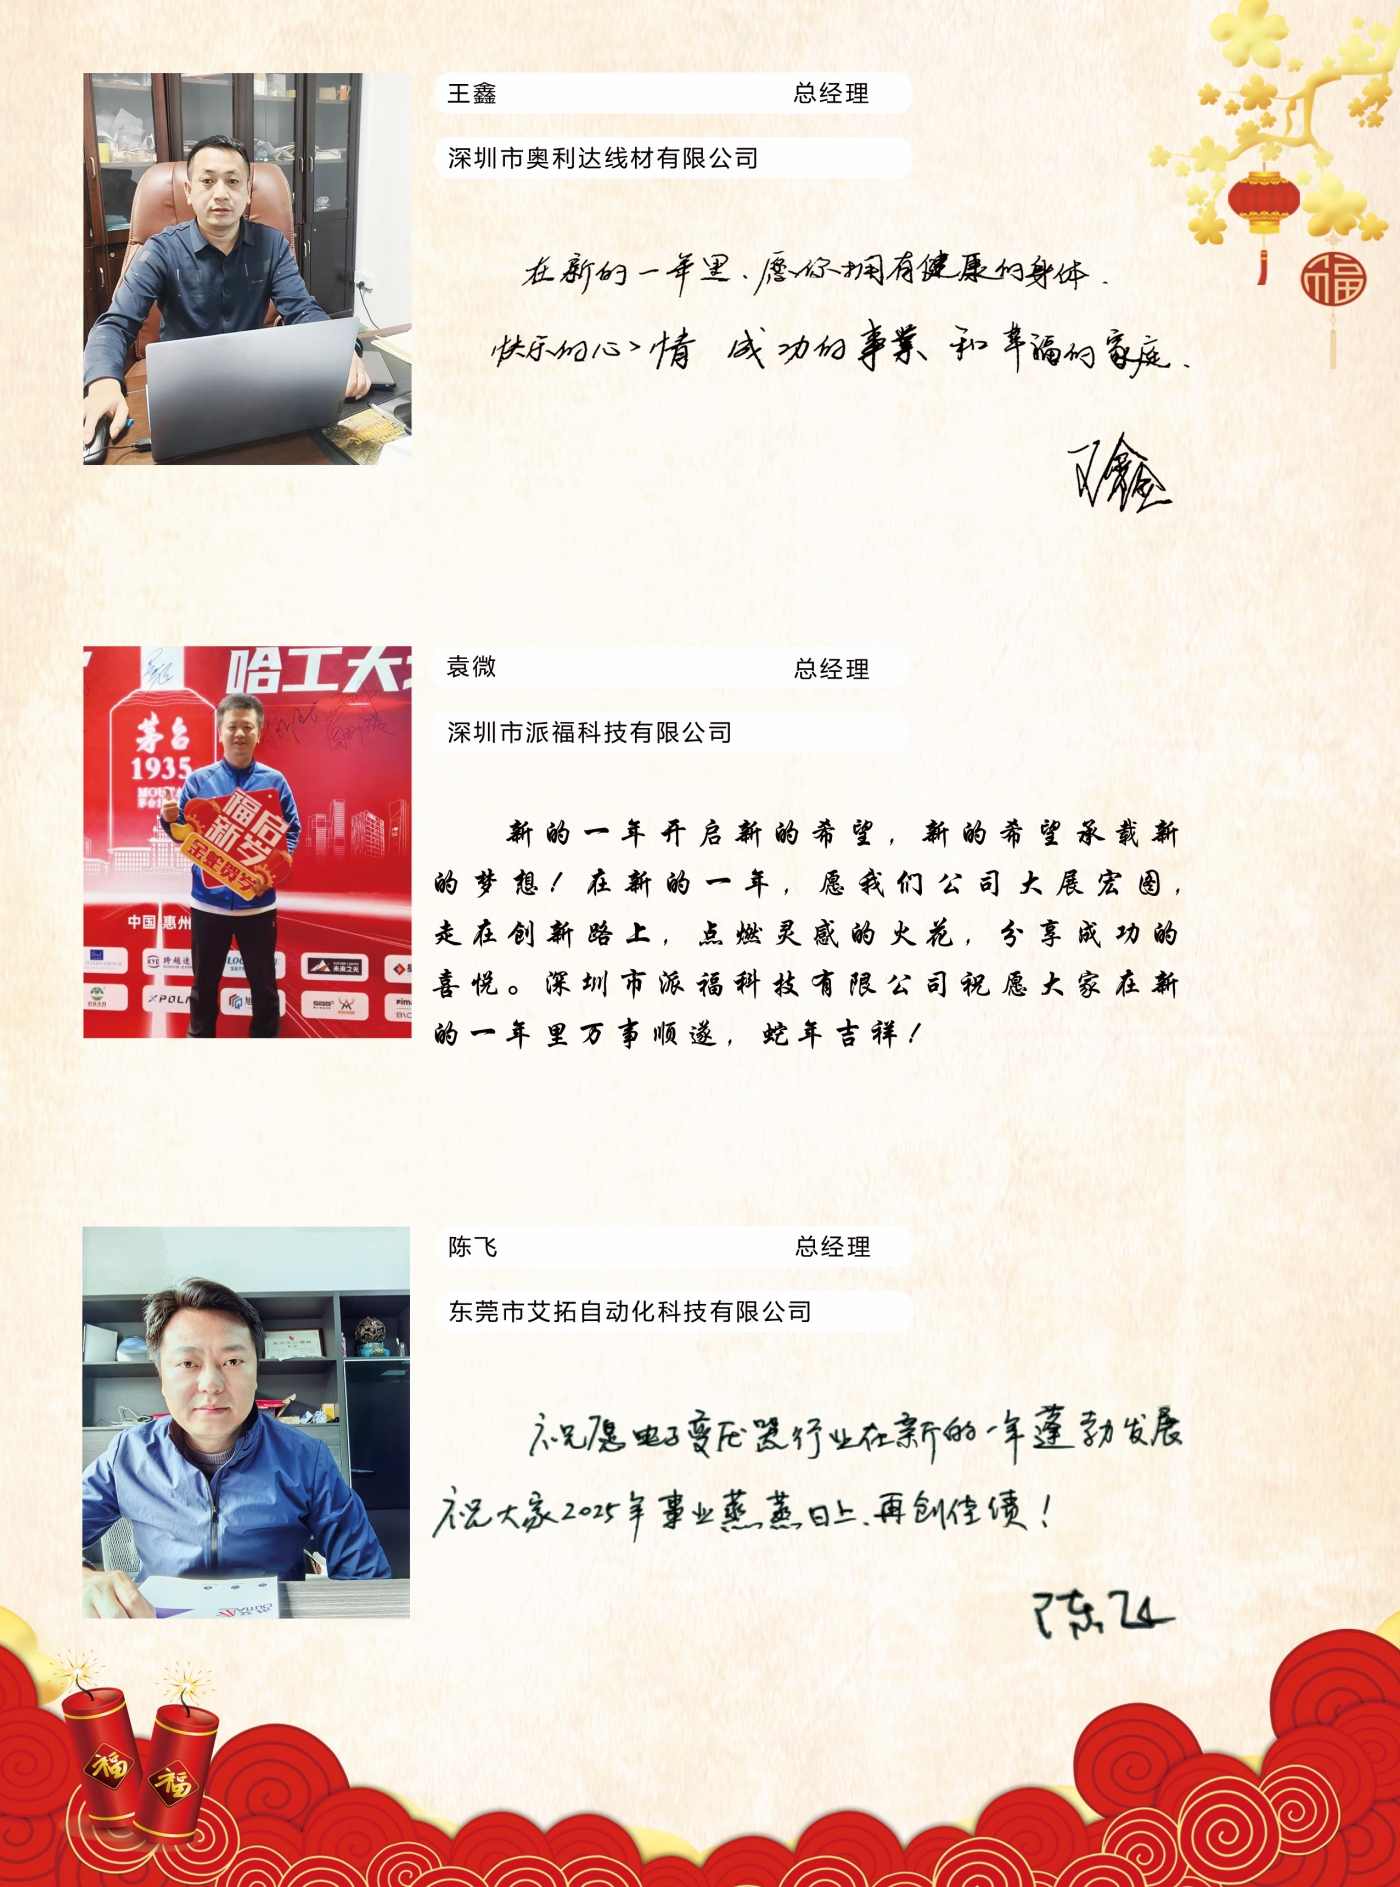 王鑫 总经理
深圳市奥利达线材有限公司
在新的一年里、愿你拥有健康的身体.
快乐的心情 成功的事業、和幸福的家庭.
王鑫
哈工大
茅台
1935
福启
新岁
金蛇贺岁
中国 惠州
KYE 跨越速
未来之光
XPOLA
袁微 总经理
深圳市派福科技有限公司
新的一年开启新的希望，新的希望承载新
的梦想！在新的一年，愿我们公司大展宏图，
走在创新路上，点燃灵感的火花，分享成功的
喜悦。深圳市派福科技有限公司祝愿大家在新
的一年里万事顺遂，蛇年吉祥！
陈飞 总经理
东莞市艾拓自动化科技有限公司
祝愿电子变压器行业在新的一年蓬勃发展
祝大家2025年事业蒸蒸日上、再创佳绩！
陈飞
福
福
福